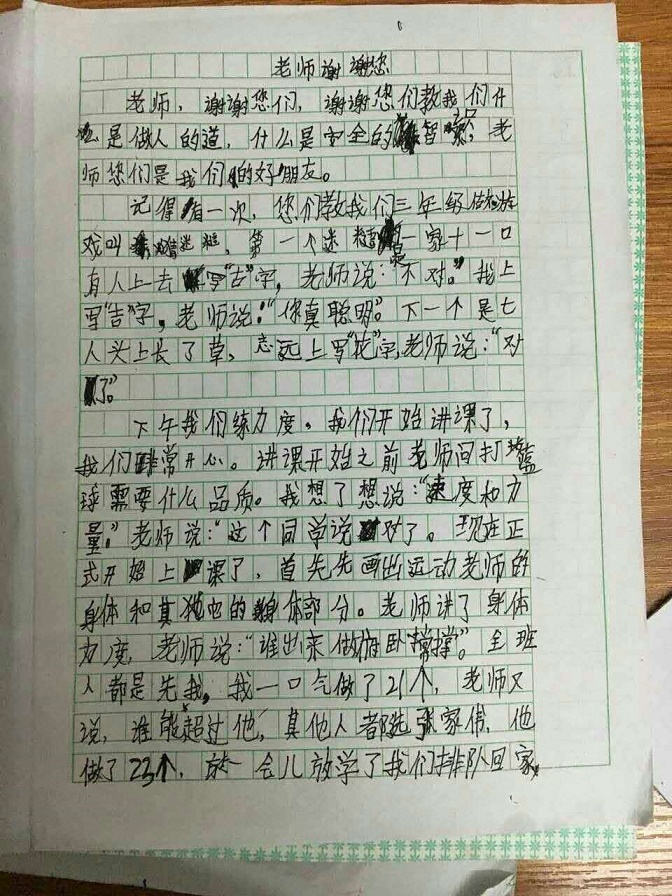 老师谢谢您
老师，谢谢您们，谢谢您们教我们什
么是做人的道，什么是安全的智 老
师您们是我们的好朋友。
记得有一次，您们教我们三年级做游
戏叫 迷 ，第一个迷 是一家十一口
有人上去写“古”字，老师说：“不对。”我上
写“吉”字，老师说：“你真聪明”。下一个是七
人头上长了草，志远上写“花”字老师说：“对
了”。
下午我们练力度。我们开始讲课了，
我们非常开心。讲课开始之前老师问打篮
球需要什么品质。我想了想说：“速度和力
量”老师说：“这个同学说对了。现在正
式开始上课了，首先先画出运动老师的
身体和其他的身体部分。老师讲了身体
力度，老师说：“谁出来做俯卧撑”。全班
人都是先我，我一口气做了21个，老师又
说，谁能超过他，其他人都选张家倩，他
做了23个，放一会儿放学了我们排队回家。